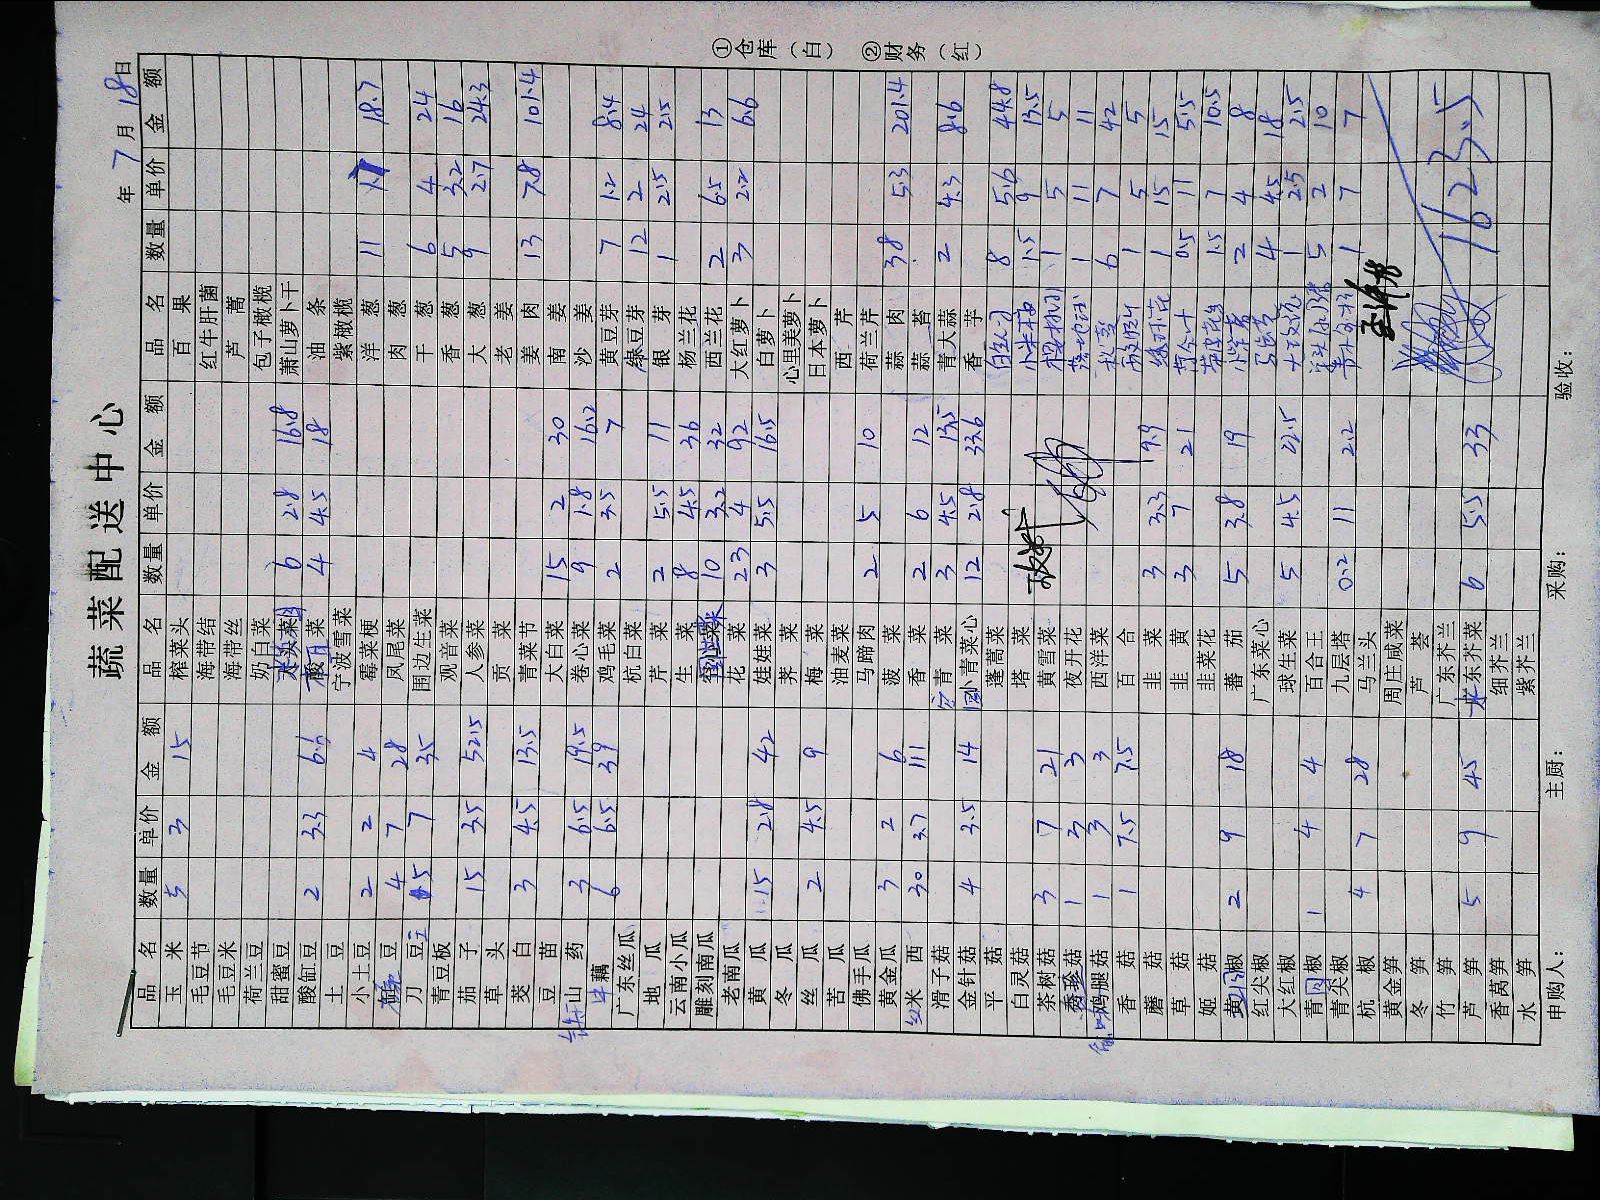 蔬菜配送中心
年 7 月 18 日
品名 数量 单价 金额 品名 数量 单价 金额 品名 数量 单价 金额
玉米 5 3 15 榨菜头 百果
毛豆节 海带结 红牛肝菌
毛豆米 海带丝 芦蒿
荷兰豆 奶白菜 包子橄榄
甜蜜豆 6 2.8 16.8 萧山萝卜干
酸缸豆 2 3.3 6.6 酸白菜 4 4.5 18 油条
土豆 宁波雪菜 紫橄榄
小土豆 2 2 4 霉菜梗 洋葱 11 18.7
豆 4 7 28 凤尾菜 肉葱
刀豆 5 7 35 围边生菜 干葱 6 4 24
青豆板 观音菜 香葱 5 3.2 16
茄子 15 3.5 52.5 人参菜 大葱 9 2.7 24.3
草头 贡菜 老姜
茭白 3 4.5 13.5 青菜节 姜肉 13 7.8 101.4
豆苗 大白菜 15 2 30 南姜
山药 3 6.5 19.5 卷心菜 9 1.8 16.2 沙姜
藕 6 6.5 39 鸡毛菜 2 3.5 7 黄豆芽 7 1.2 8.4
广东丝瓜 杭白菜 绿豆芽 12 2 24
地瓜 芹菜 2 5.5 11 银芽 1 2.5 2.5
云南小瓜 生菜 8 4.5 36 杨兰花
雕刻南瓜 10 3.2 32 西兰花 2 6.5 13
老南瓜 花菜 23 4 92 大红萝卜 3 2.2 6.6
黄瓜 15 2.8 42 娃娃菜 3 5.5 16.5 白萝卜
冬瓜 荠菜 心里美萝卜
丝瓜 2 4.5 9 梅菜 日本萝卜
苦瓜 油麦菜 西芹
佛手瓜 马蹄肉 2 5 10 荷兰芹
黄金瓜 3 2 6 菠菜 蒜肉 38 5.3 201.4
米西 30 3.7 111 香菜 2 6 12 蒜苔
滑子菇 青菜 3 4.5 13.5 青大蒜 2 4.3 8.6
金针菇 4 3.5 14 小青菜心 12 2.8 33.6 香芋
平菇 蓬蒿菜 8 5.6 44.8
白灵菇 塔菜 小米椒 1.5 9 13.5
茶树菇 3 7 21 黄雪菜 1 5 5
秀珍菇 1 3 3 夜开花 1 11 11
鸡腿菇 1 3 3 西洋菜 6 7 42
香菇 1 7.5 7.5 百合 1 5 5
蘑菇 韭菜 3 3.3 9.9 1 15 15
草菇 韭黄 3 7 21 0.5 11 5.5
姬菇 韭菜花 1.5 7 10.5
黄椒 2 9 18 蕃茄 5 3.8 19 2 4 8
红尖椒 广东菜心 4 4.5 18
大红椒 球生菜 5 4.5 22.5 1 2.5 2.5
青椒 1 4 4 百合王 5 2 10
青尖椒 九层塔 0.2 11 2.2 1 7 7
杭椒 4 7 28 马兰头
黄金笋 周庄咸菜
冬笋 芦荟
竹笋 广东芥兰
芦笋 5 9 45 东芥菜 6 5.5 33 1623.5
香莴笋 细芥兰
水笋 紫芥兰
申购人： 主厨： 采购： 验收：
①仓库（白） ②财务（红）